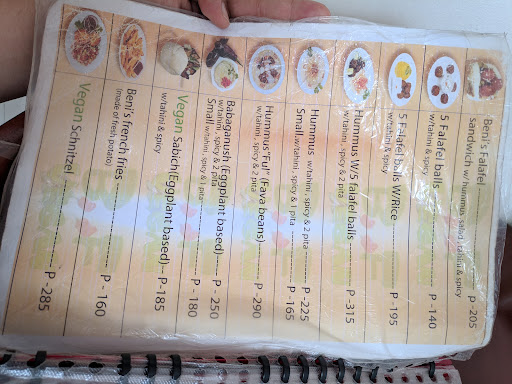 Beni's Falafel ---------- P -205
sandwich w/ hummus, salad, tahini & spicy
5 Falafel balls ---------- P -140
w/tahini & spicy
5 Falafel balls W/Rice ---------- P -195
w/tahini & spicy
Hummus W/5 falafel balls ------ P -315
w/tahini, spicy & 2 pita
Hummus w/tahini, spicy & 2 pita ------ P -225
Small w/tahini, spicy & 1 pita ------ P -165
Hummus"Ful" (Fava beans) ------ P -290
w/tahini, spicy & 2 pita
Babaganush (Eggplant based)---- P - 250
w/tahini, spicy & 2 pita
Small w/tahini, spicy & 1 pita ------ P - 180
Vegan Sabich(Eggplant based)-- P -185
w/tahini & spicy
Beni's french fries ---------- P - 160
(made of fresh potato)
Vegan Schnitzel ---------- P -285